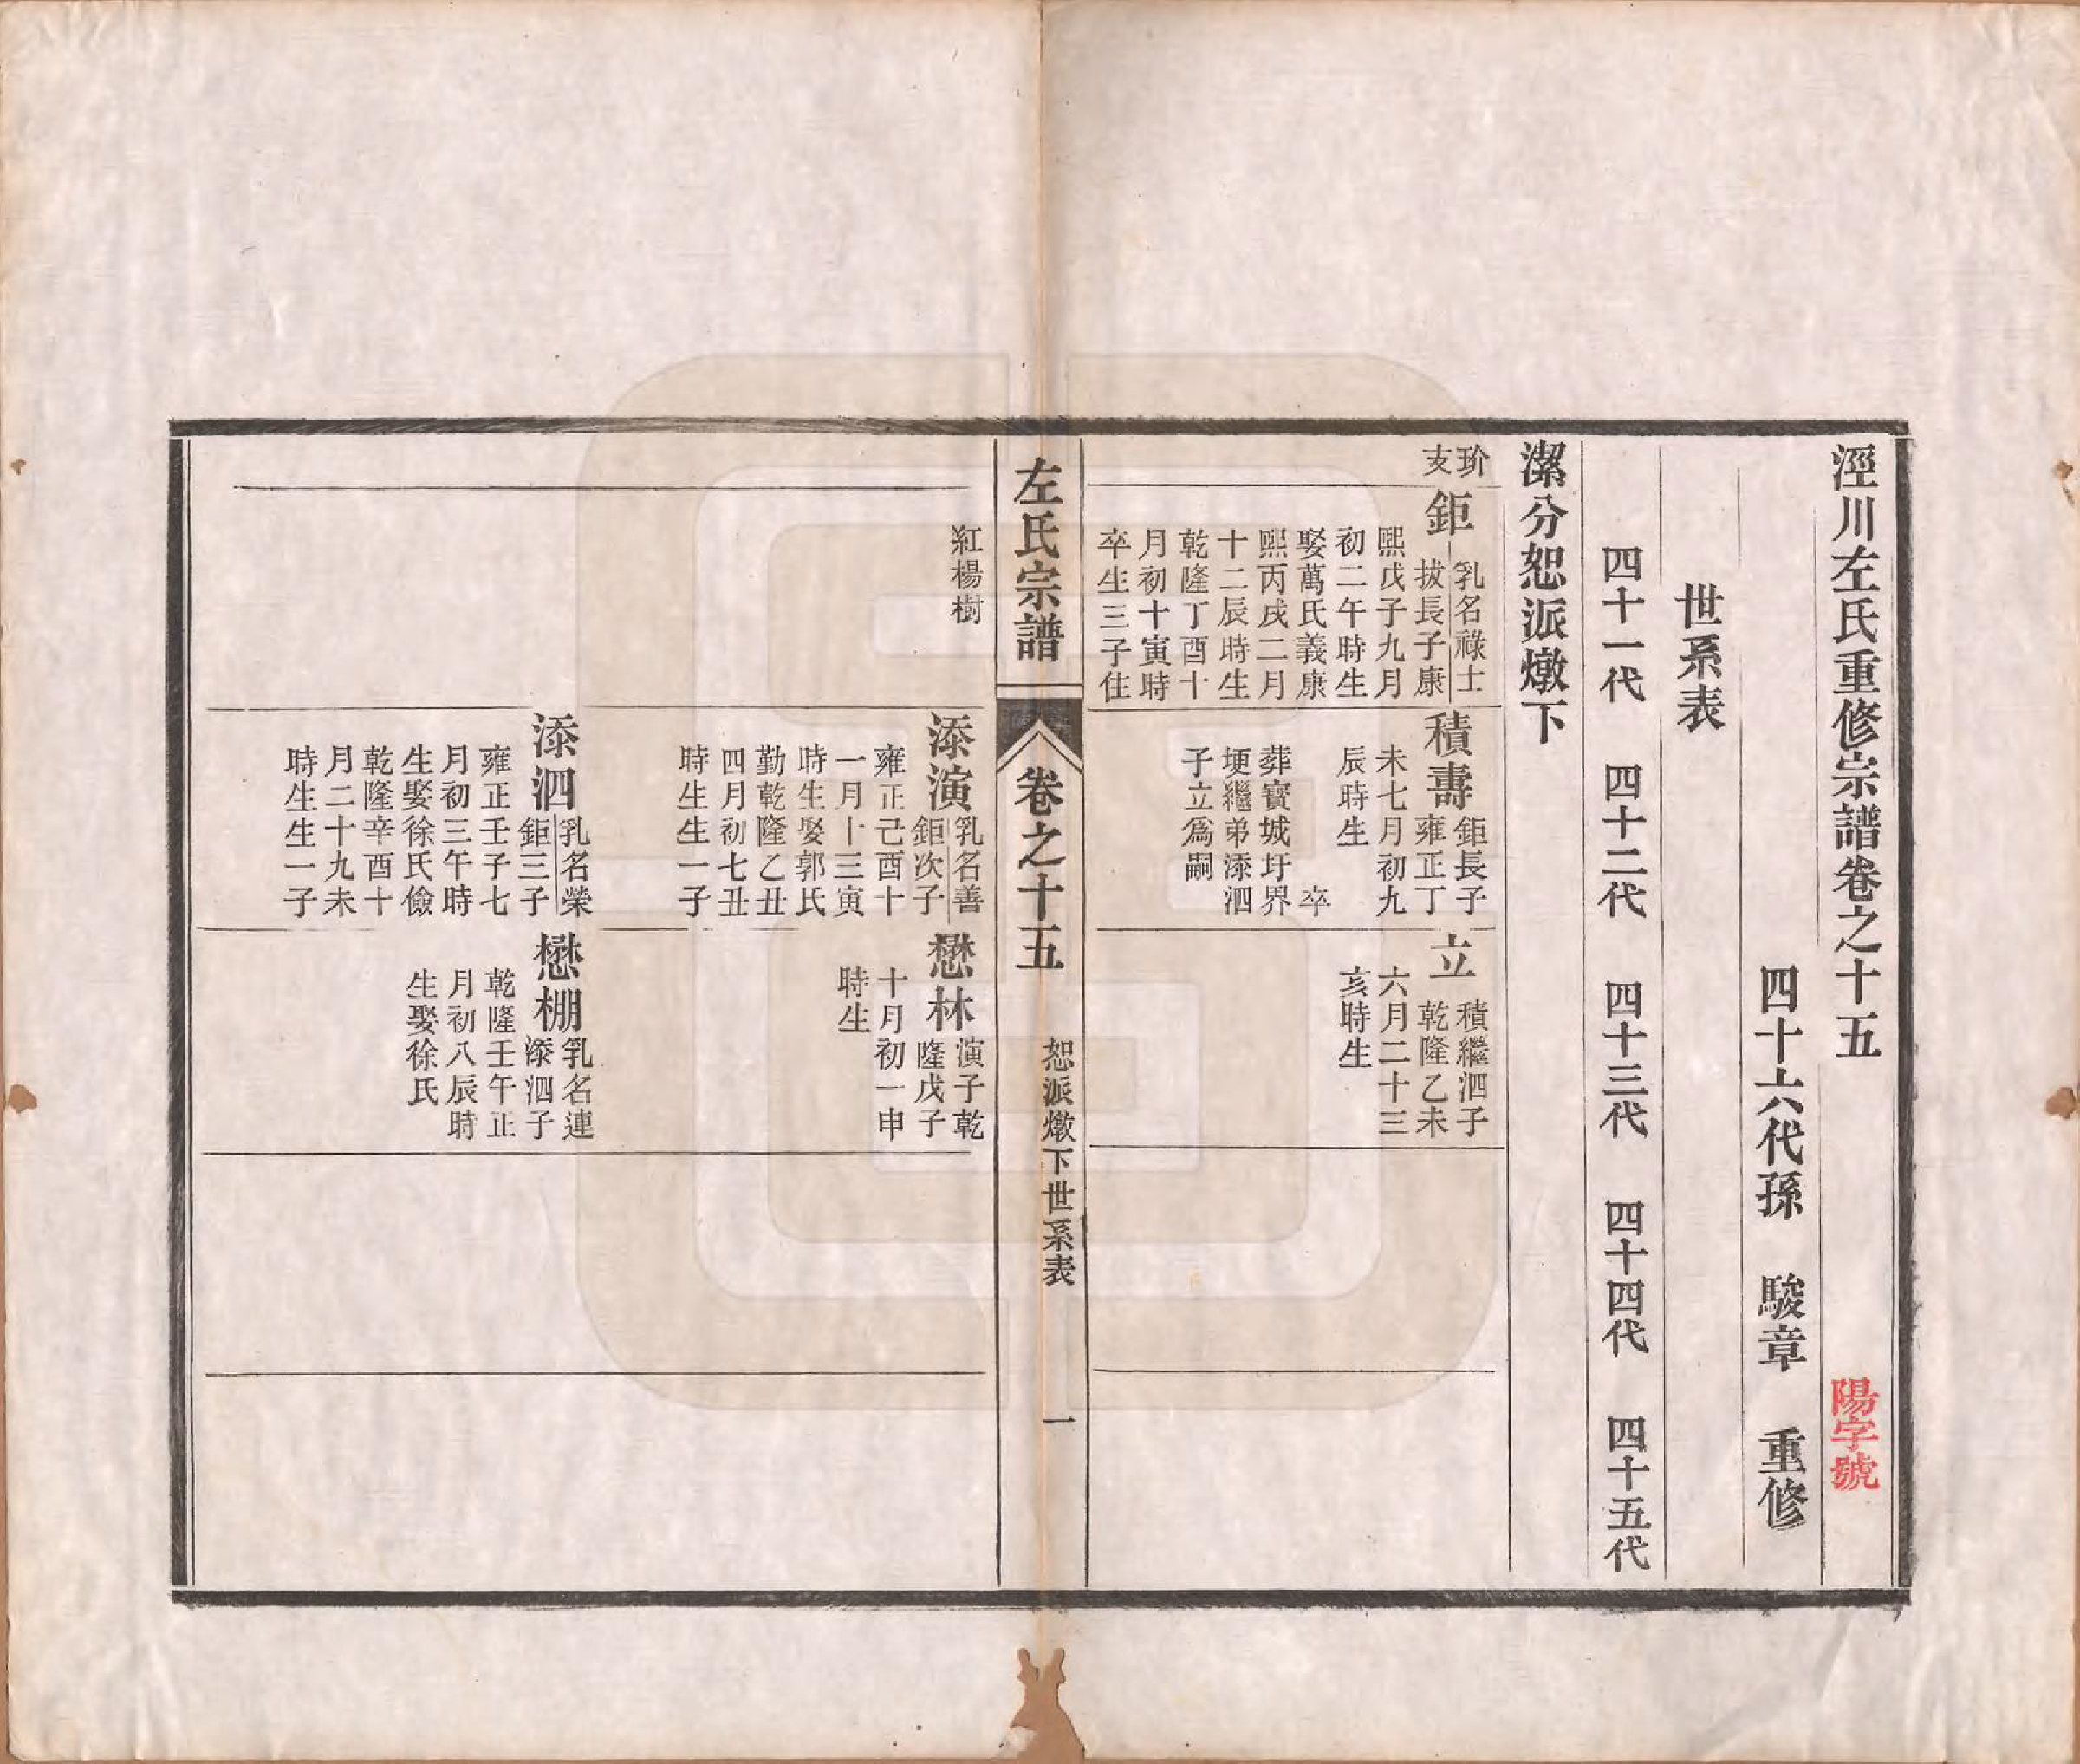 涇川左氏重修宗譜卷之十五
陽字號
四十六代孫 駿章 重修
世系表
四十一代 四十二代 四十三代 四十四代 四十五代
潔分恕派燉下
玠
支
鉅
乳名祿士
拔長子康
熙戊子九月
初二午時生
娶萬氏義康
熙丙戌二月
十二辰時生
乾隆丁酉十
月初十寅時
卒生三子住
積壽
鉅長子
雍正丁
未七月初九
辰時生
卒
葬寶城圩界
埂繼弟添泗
子立爲嗣
立
積繼泗子
乾隆乙未
六月二十三
亥時生
左氏宗譜
卷之十五
恕派燉下世系表
一
紅楊樹
添演
乳名善
鉅次子
雍正己酉十
一月十三寅
時生娶郭氏
勤乾隆乙丑
四月初七丑
時生生一子
懋林
演子乾
隆戊子
十月初一申
時生
添泗
乳名榮
鉅三子
雍正壬子七
月初三午時
生娶徐氏儉
乾隆辛酉十
月二十九未
時生生一子
懋棚
乳名連
添泗子
乾隆壬午正
月初八辰時
生娶徐氏